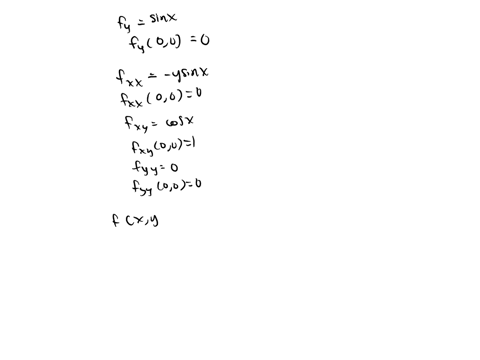 fy = sinx
fy(0,0) = 0
fxx = -ysinx
fxx(0,0)=0
fxy = cosx
fxy(0,0)=1
fyy = 0
fyy(0,0)=0
f(x,y